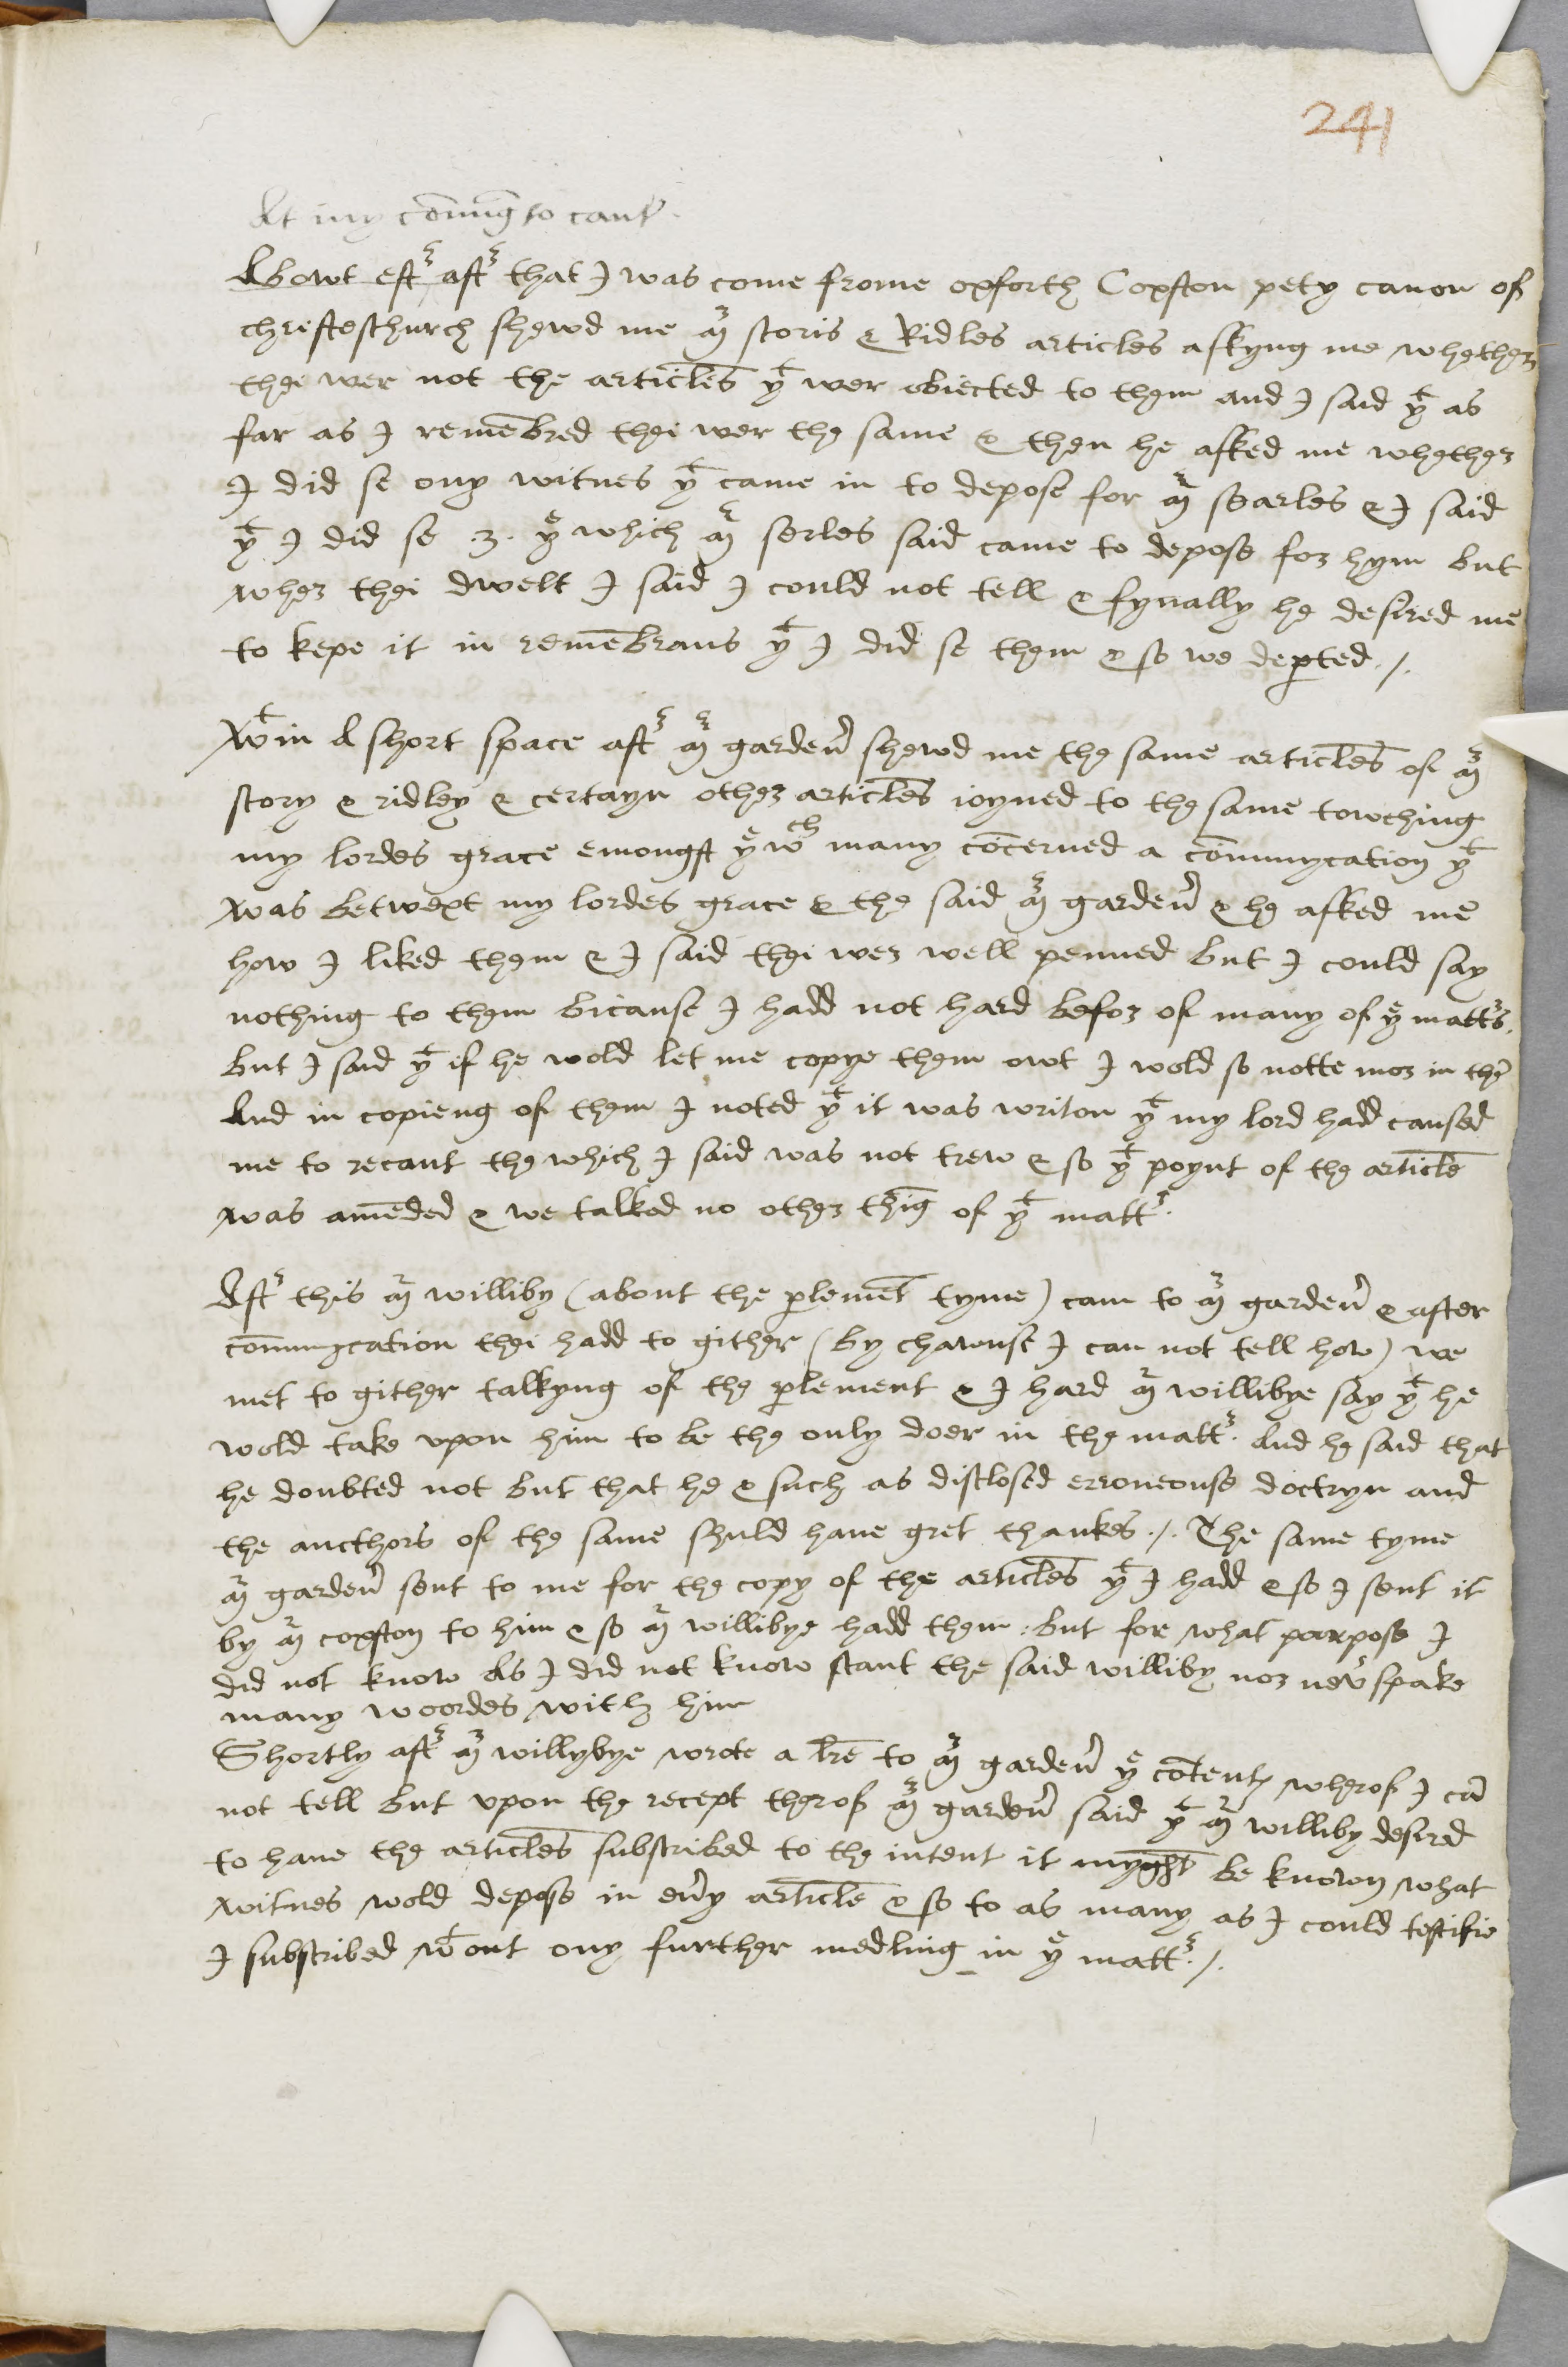 241
At my cōmīg to cant'.
Abowt estr aftr that I was come frome oxforth Coxston pety canon of
christeschurch shewd me mr storis & Ridles articles askyng me whether
thei wer not the articles yt wer obiected to them and I said yt as
far as I remēbred thei wer the same & then he asked me whether
I did se ony witnes yt came in to depose for mr searles & I said
yt I did se .3. ye which mr serles said came to depose for hym but
wher thei dwelt I said I could not tell & fynally he desired me
to kepe it in remēbrans yt I did se them & so we deꝑted ./.
Wtin A short space aftr mr garden' shewd me the same articles of mr
story & ridley & certayn other articles ioyned to the same towching
my lordes grace emongst ye wch many cōcerned a cōmunycation yt
was betwext my lordes grace & the said mr garden' & he asked me
how I liked them & I said thei wer well penned but I could say
nothing to them bicause I hadd not hard befor of many of ye mattrs.
but I said yt if he wold let me copye them owt I wold so notte mor in thē
And in copieng of them I noted yt it was writon yt my lord hadd caused
me to recant the which I said was not trew & so yt poynt of the article
was amēded & we talked no other thīg of yt mattr.
Aftr this mr williby (about the ꝑlemēt tyme) cam to mr garden' & after
cōmunycation thei hadd to gither (by chawnse I can not tell how) we
met to gither talkyng of the ꝑlement & I hard mr willibye say yt he
wold take vpon him to be the only doer in the mattr. And he said that
he doubted not but that he & such as disclosed erroneouse doctryn and
the aucthors of the same shuld haue gret thankes ./. The same tyme
mr garden' sent to me for the copy of the articles yt I hadd & so I sent it
by mr coxston to him & so mr willibye hadd them: but for what purpose I
did not know As I did not know stant the said williby nor neu' spake
many woordes with him
Shortly aftr mr willybye wrote a lr̄e to mr garden' ye cōtents wherof I cā
not tell but vpon the recept therof mr garden' said yt mr williby desired
to haue the articles subscribed to the intent it myght be known what
witnes wold depose in eu'y article & so to as many as I could testifie
I subscribed wtout ony further medling in ye mattr ./.